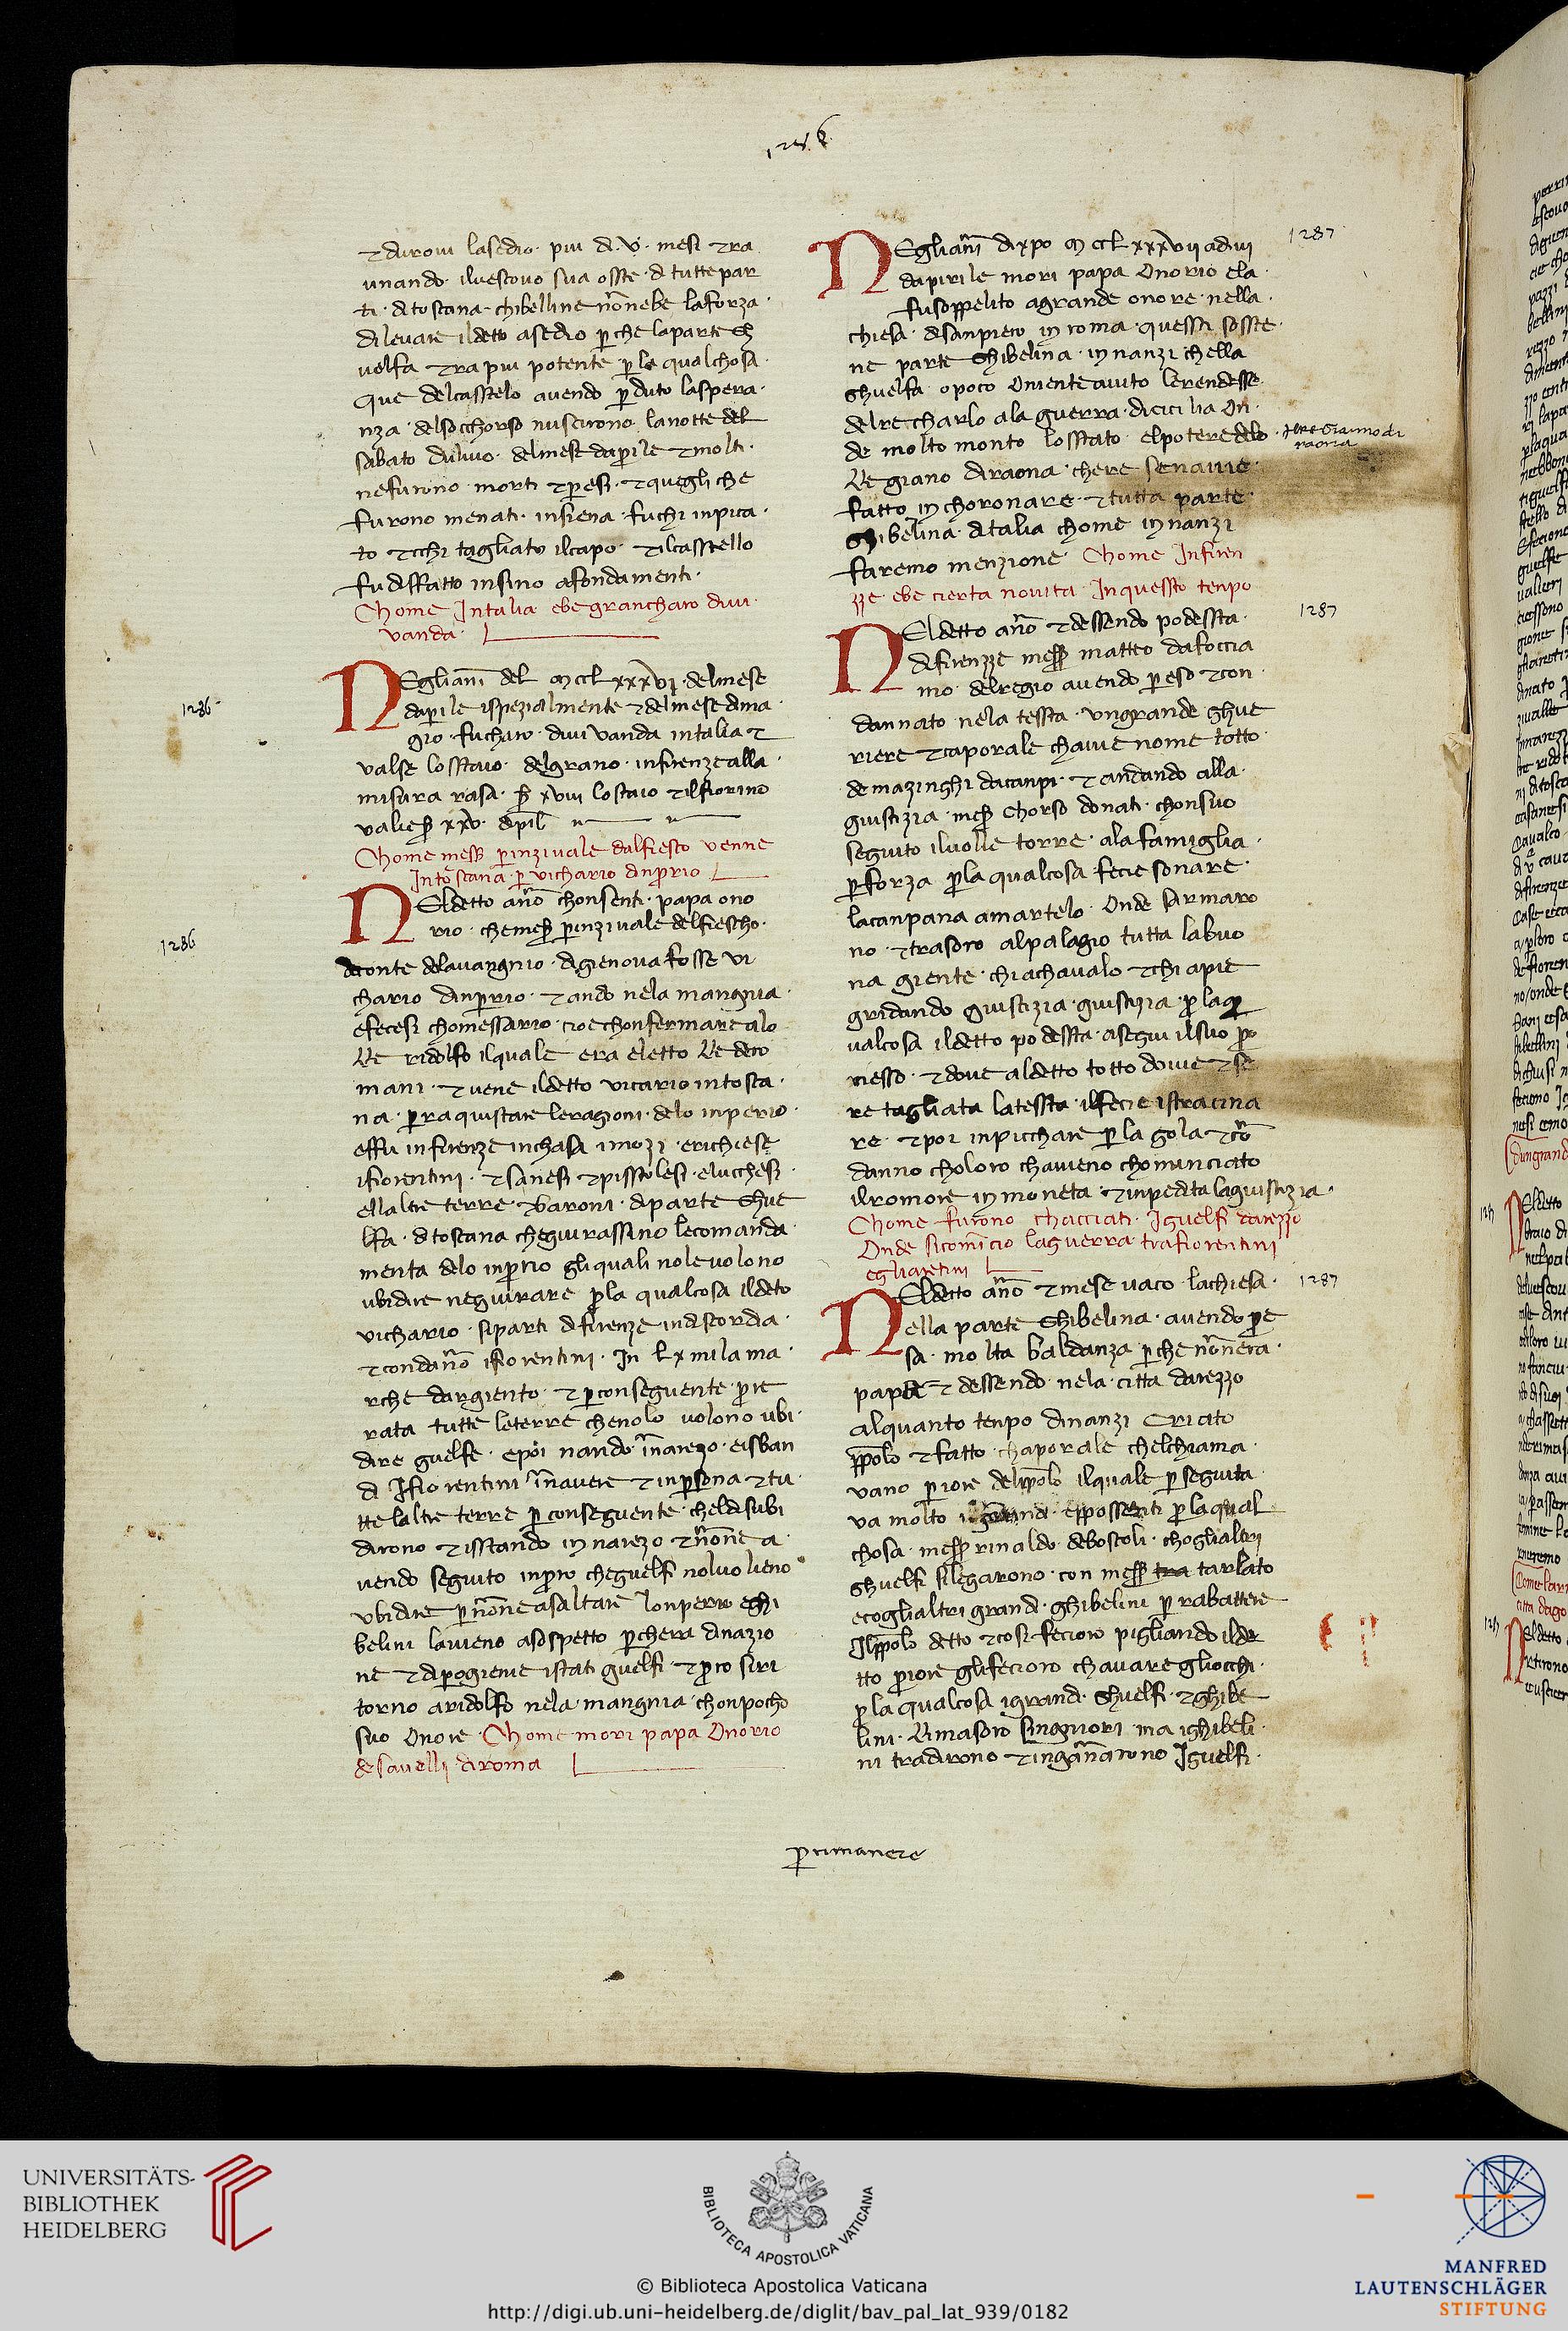 1286
et duroui lasedio · piu di · v · mesi et ra
unando · iluescouo sua osste · di tutte par
ti · di toscana · ghibelline non ebe laforza ·
di leuare il detto asedio perche laparte gh
uelfa era piu potente · per la qual chosa ·
que delcasstelo auendo perduto laspera ·
nza · delsocchorso nuscirono lanotte del
sabato duliuo · delmese daprile et molti ·
nefurono · morti et presi · et quegli che
furono menati · insiena · fuchi inpica ·
to et chi tagliato ilcapo · et ilcasstello
fu disfatto insino afondamenti ·
Chome Intalia ebe grancharo diui ·
vanda ·
1286
NEgliani del MCCLXXXVI · delmese
daprile ispezialmente et delmese dima ·
gio · fucharo · diuivanda intalia et
valse losstaio · delgrano · infirenze alla ·
misura rasa · s xviii lo staio et ilfiorino
valie s xxv · dipil
Chome mess prinzivale dalfiesco venne
Intoscana · per vichario dinperio
1286
NEldetto ano chonsenti · papa ono
rio · chemess prinzivale delfiescho ·
deconte delauangnio · digienoua fosse vi
chario dinperio · et ando nela mangnia ·
efecesi chomessario · cioe chonfermare alo
Re ridolfo ilquale era eletto Re dero
mani · et uene ildetto vicario intosca ·
na · per raquistare leragioni · delo inperio ·
effu infirenze inchasa imozi · erichiese
ifiorentini · et sanesi et pisstolesi · eluchesi ·
ellaltre terre · et baroni · diparte ghue
lfa · di toscana chegiurassino lecomanda ·
menta delo inperio gliquali nolevolono
ubidire negiurare per la qualcosa ildeto
vichario · siparti difirenze indiscordia ·
et condano ifiorentini · In lx mila ma ·
rche dargiento · et perconseguente · prie
rata tutte leterre chenolo volono ubi ·
dire guelfe · epoi nando · inarezo · eisban
di Ifiorentini inauere et inpersona et tu ·
tte laltre terre per conseguente · cheldisubi
dirono et isstando innarezo et none a ·
uendo seguito inperio cheguelfi noluolieno
vbidire per none asaltare lonperio eghi
belini lauieno asospetto percherа dinazio
ne et diprogienie istati guelfi · et pero siri
torno aridolfo nela · mangnia · chonpocho
suo Onore · Chome mori papa Onorio
desauelli diroma
1287
NEgliani dixpo MCCLXXXVII adi iii
dapirile mori papa Onorio ela ·
fusoppelito agrande onore · nella ·
chiesa · disanpiero in roma · quessti sosste ·
ne parte ghibelina · innanzi chella
ghuelfa · opoco oniente aiuto lerendesse
delre charlo ala guerra · dicicilia On ·
de molto monto losstato · elpotere delo · Ilre Giamo di
raona
Re giano diraona · chere senauie ·
fatto inchoronare · et tutta parte ·
ghibelina · ditalia chome innanzi
faremo menzione · Chome Infiren
zze ebe cierta nouita · Inquessto tenpo
1287
NEldetto ano et dessendo podessta ·
difirenzze mess matteo dafoccia
ino · delregio auendo preso et con ·
dannato · nela tessta · vngrande ghue
riere et caporale chauie nome totto ·
demazinghi dacanpi · et andando alla ·
giustizia · mess Chorso donati · chonsuo
seguito iluolle torre · ala famiglia ·
perforza perla qualcosa · fecie sonare ·
lacanpana amartelo · Onde sarmaro
no · et trasoro alpalagio tutta labuo
na giente · chi achaualo et chi apie
gridando giustizia · giustizia · per la q
ualcosa ildetto podessta · asegui ilsuo pro
ciesso · et doue aldetto totto douie esse
re tagliata latessta · ilfecie istracina
re · et poi inpicchare per la gola et con
danno choloro chauieno chominciato
ilromore inmoneta · et inpedita lagiustizia ·
Chome furono chacciati · Iguelfi darezzo
Onde sicomincio laguerra · trafiorentini
egliaretini
1287
NEldetto ano et mese uaco · lachiesa ·
Nella parte ghibelina · auendo pre
sa · molta baldanza perche nonera ·
papa et dessendo · nela · citta darezzo
alquanto tenpo dinanzi criato
ppolo et fatto · chaporale chelchiama ·
vano · priore delppolo ilquale perseguita
va molto igrandi · eppossenti per laqual
chosa · mess rinaldo · deboscoli · choglialtri
ghuelfi silegarono · con mess tra tarlato
ecoglialtri grandi · ghibelini per rabattere
Ilppolo detto et cosi fecioro pigliando ilde
tto priore glifecioro chauare gliocchi ·
perla qualcosa igrandi · ghuelfi · et ghibe
lini · Rimasoro singniori · ma ighibeli ·
ni tradirono et inganarono Iguelfi ·
per rimanere
UNIVERSITÄTS-
BIBLIOTHEK
HEIDELBERG
BIBLIOTECA APOSTOLICA VATICANA
© Biblioteca Apostolica Vaticana
http://digi.ub.uni-heidelberg.de/diglit/bav_pal_lat_939/0182
MANFRED
LAUTENSCHLÄGER
STIFTUNG